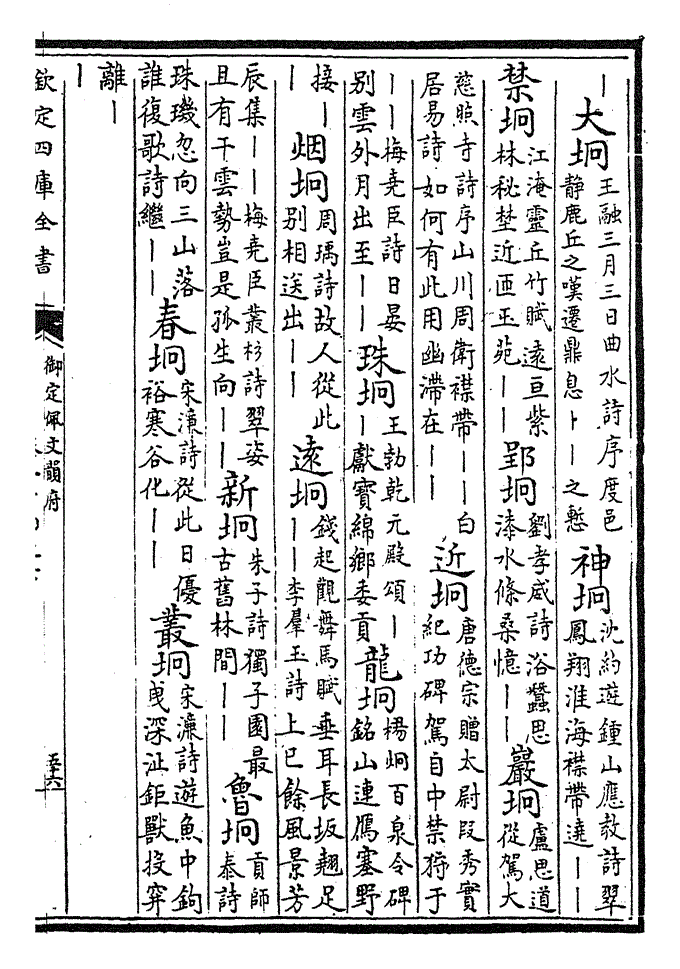 丨大坰王融三月三日曲水詩序度邑靜鹿丘之嘆遷鼎息卜丨之慙神坰沈約遊鍾山應教詩翠鳳翔淮海襟帶遶丨丨
禁坰江淹靈丘竹賦遠亘紫林秘埜近匝玉苑丨丨郢坰劉孝威詩浴蠶思漆水條桑憶丨丨巖坰盧思道從駕大
慈照寺詩序山川周衛襟帶丨丨白居易詩如何有此用幽滯在丨丨近坰唐德宗贈太尉段秀實紀功碑駕自中禁狩于
丨丨梅堯臣詩日晏別雲外月出至丨丨珠坰王勃乾元殿頌丨丨獻寶綿鄉委貢龍坰楊炯百泉令碑銘山連鴈塞野
接丨丨烟坰周瑀詩故人從此別相送出丨丨遠坰錢起觀舞馬賦垂耳長坂翹足丨丨李羣玉詩上巳餘風景芳
辰集丨丨梅堯臣叢杉詩翠姿且有干雲勢豈是孤生向丨丨新坰朱子詩獨子園最古舊林間丨丨魯坰貢師泰詩
珠璣忽向三山落誰復歌詩繼丨丨春坰宋濂詩從此日優裕寒谷化丨丨叢坰宋濂詩遊魚中鉤曳深沚鉅獸投穽
離丨丨
欽定四庫全書
御定佩文韻府
五十六